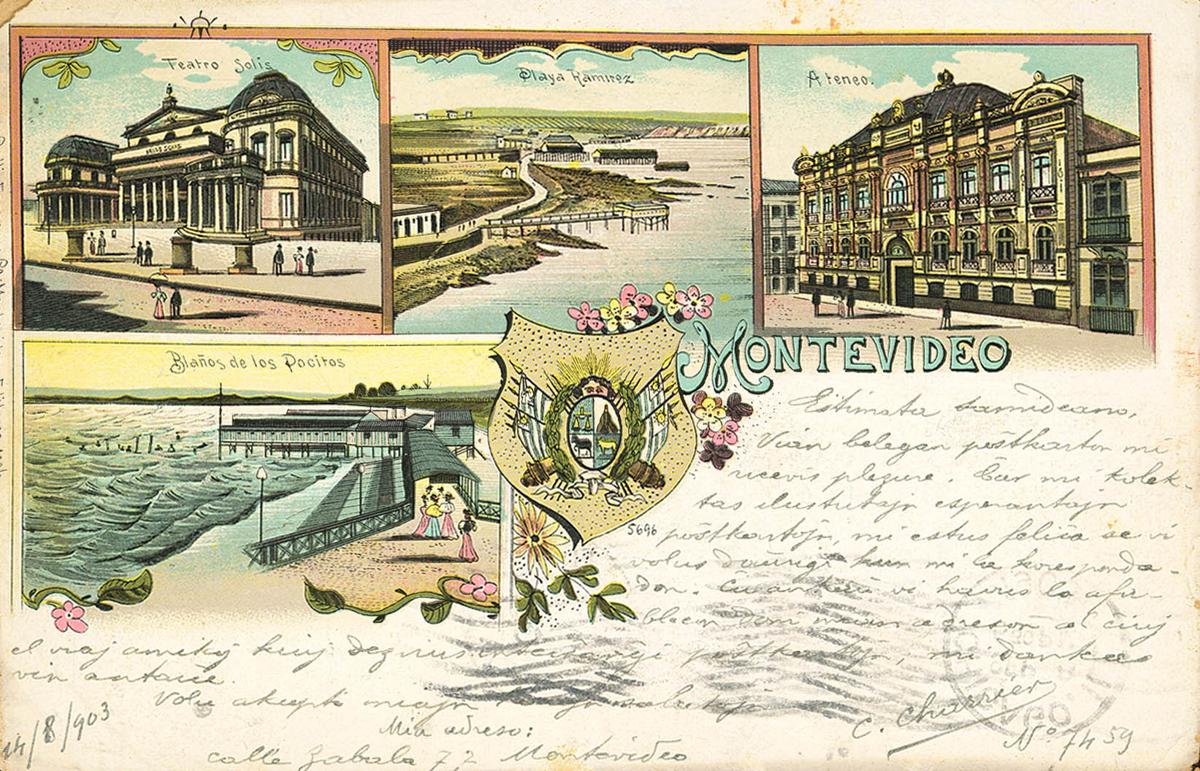 Teatro Solis
Playa Ramirez
Ateneo.
Blaños de los Pocitos
MONTEVIDEO
5696
Estimata samideano,
Vian belegan poŝtkarton mi
ricevis plezure. Ĉar mi kolek-
tas ilustritajn esperantajn
poŝtkartojn, mi estus feliĉa se vi
volus daŭrigi kun mi la koresponda-
don. Ĉu ankaŭ vi havus la afa-
blecon doni mian adreson al ĉiuj
el viaj amikoj kiuj dezirus poŝtkartojn, mi dankas
vin antaŭe.
Volu akcepti miajn salutojn
C. Charrier
14/8/903
Mia adreso:
Nº 7459
calle Zabala 77 Montevideo